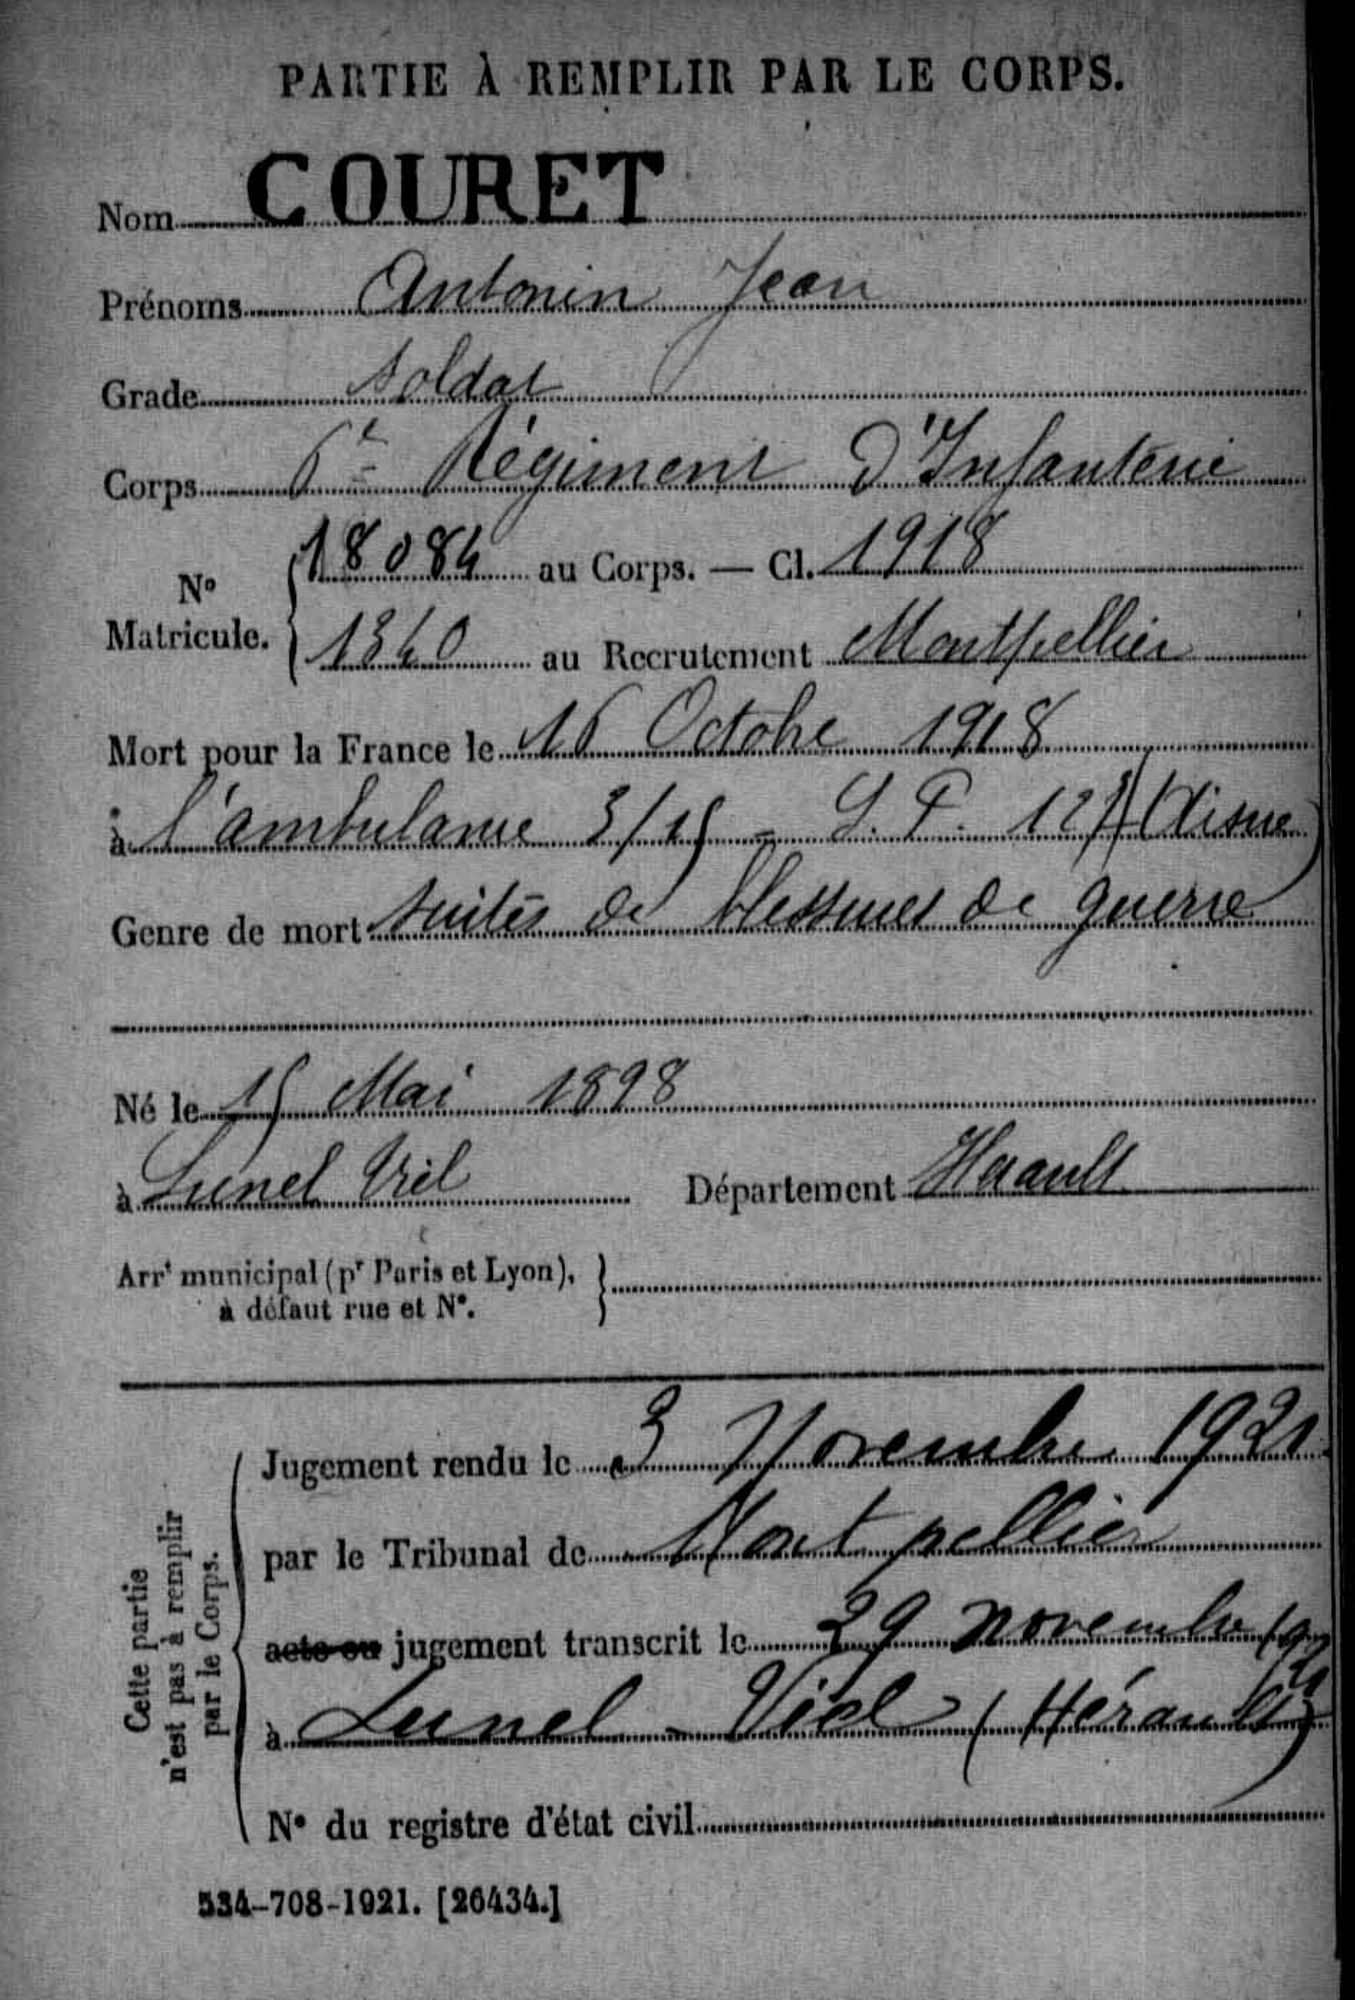 PARTIE À REMPLIR PAR LE CORPS.
Nom COURET
Prénoms Antonin Jean
Grade Soldat
Corps 6e Régiment d'Infanterie
No Matricule. 18084 au Corps. — Cl. 1918
1340 au Recrutement Montpellier
Mort pour la France le 16 Octobre 1918
à l'ambulance 3/15 - S. P. 127 (Aisne)
Genre de mort suites de blessures de guerre
Né le 15 Mai 1898
à Lunel Viel Département Hérault
Arrt municipal (pr Paris et Lyon),
à défaut rue et N°.
Cette partie
n'est pas à remplir
par le Corps.
Jugement rendu le 3 Novembre 1921
par le Tribunal de Montpellier
acte ou jugement transcrit le 29 novembre 1921
à Lunel-Viel (Hérault)
N° du registre d'état civil
534-708-1921. [26434.]